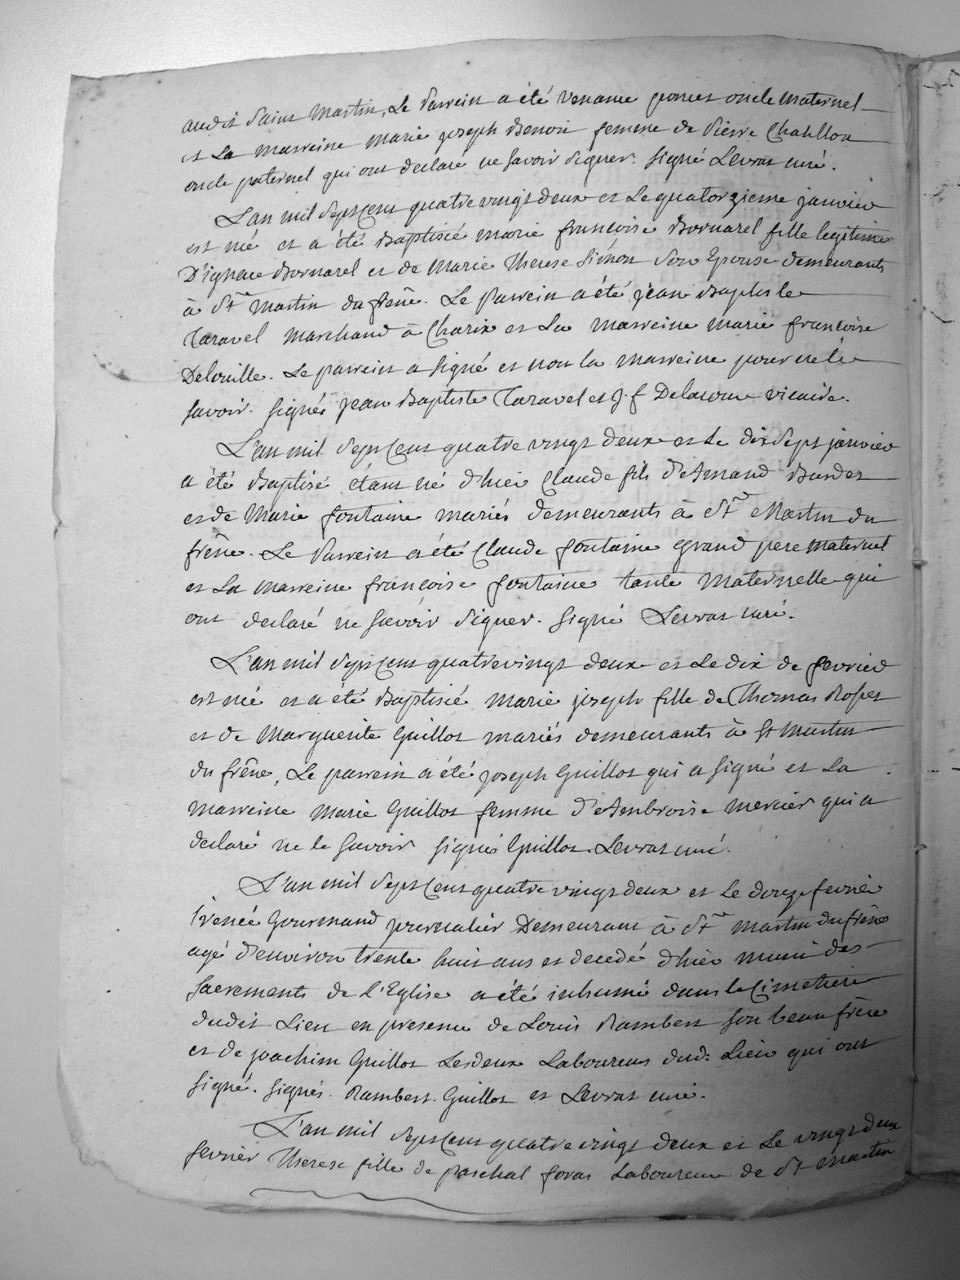 audit Saint Martin, Le Parrein a été Venance poncet oncle maternel
et La marreine marie joseph Benoit femme de Pierre Chatillon
oncle paternel qui ont declaré ne savoir signer. signé Levrat curé.
L'an mil sept cent quatre vingt deux et Le quatorzieme janvier
est né et a été Baptisée marie françoise Bornarel fille legitime
D'ignace Bornarel et de Marie Therese Simon Son Epouse demeurants
à St Martin du frêne. Le Parrein a été jean Baptiste
Taravel marchand à Charix et La marreine marie françoise
Delouille. Le parrein a signé et non la marreine pour ne le
savoir. signés jean Baptiste Taravel et j. f Delacour vicaire.
L'an mil sept cent quatre vingt deux et Le dix sept janvier
a été Baptisé étant né d'hier Claude fils d'Amand Burdet
et de Marie fontaine mariés demeurants à St Martin du
frêne. Le Parrein a été Claude fontaine grand pere maternel
et La marreine françoise fontaine tante maternelle qui
ont declaré ne savoir signer. signé Levrat curé.
L'an mil sept cent quatre vingt deux et Le dix de fevrier
est né et a été Baptisée Marie joseph fille de Thomas Rosset
et de Marguerite Guillot mariés demeurants à St Martin
du frêne, Le parrein a été joseph Guillot qui a signé et La
marreine Marie Guillot femme d'Ambroise mercier qui a
declaré ne le savoir signés Guillot. Levrat curé.
L'an mil sept cent quatre vingt deux et Le douze fevrier
irenée Gourmand Demeurant à St Martin du frêne
agé d'environ trente huit ans et decedé d'hier muni des
sacrements de L'Eglise a été inhumé dans le Cimetiere
dudit Lieu en presence de Louis Rambert son beau frère
et de joachim Guillot Les deux Laboureurs dud. Lieu qui ont
signé. signés. Rambert. Guillot et Levrat curé.
L'an mil sept cent quatre vingt deux et Le vingt deux
fevrier Therese fille de paschal foras Laboureur de St Martin